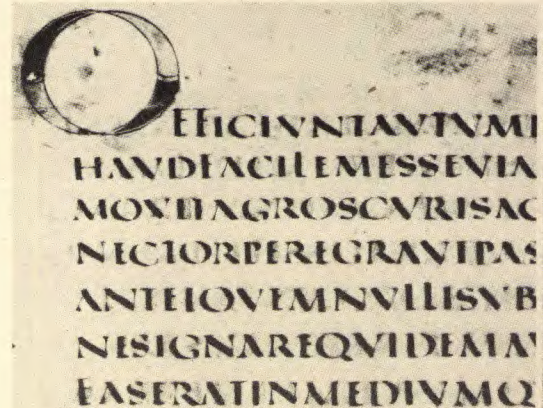 OFFICIVNTAVTVM
HAVDFACILEMESSEVIA
MOVITAGROSCVRISAC
NECTORPEREGRAVIPAS
ANTEIOVEMNVLLISVB
NESIGNAREQVIDEMAV
FASERATINMEDIVMQ